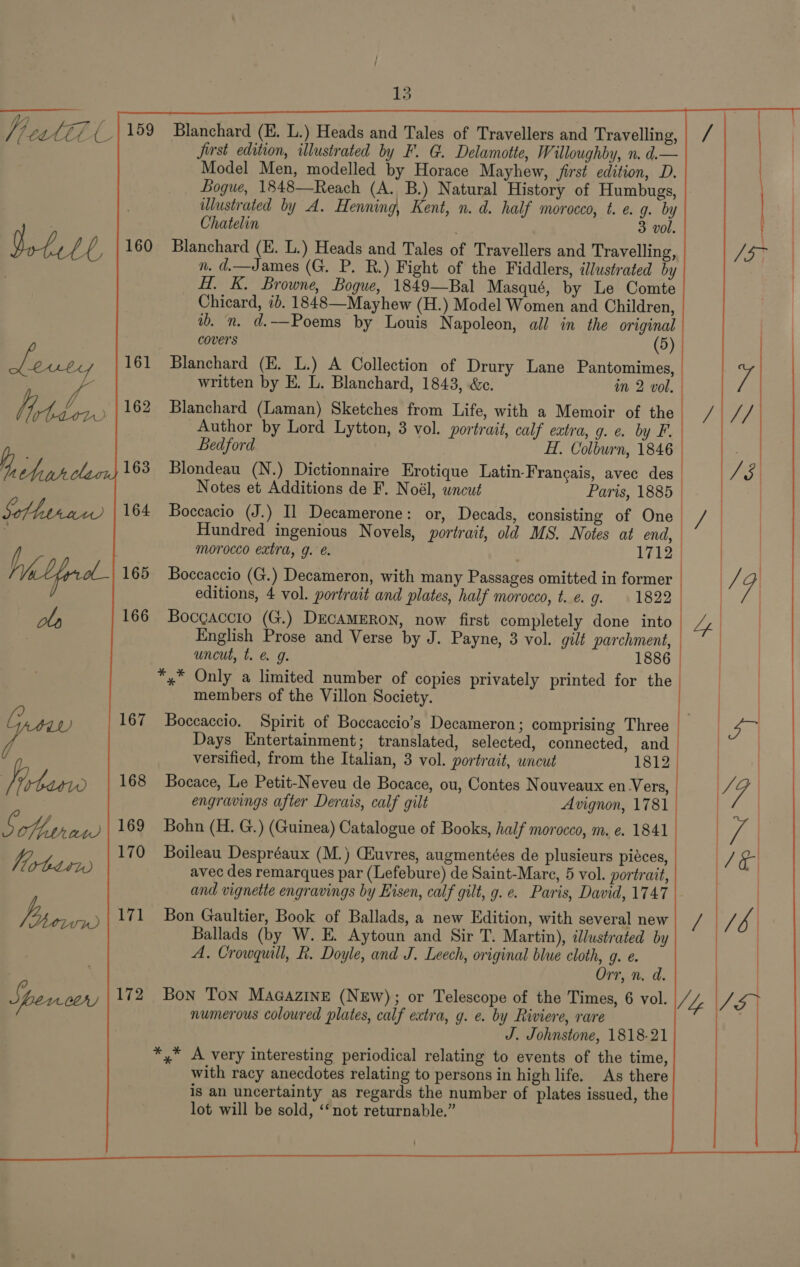 13
159 Blanchard (E. L.) Heads and Tales of Travellers and Travelling, /
first edition, illustrated by F. G. Delamotte, Willoughby, n. d.—
Model Men, modelled by Horace Mayhew, first edition, D.
Bogue, 1848—Reach (A. B.) Natural History of Humbugs,
illustrated by A. Henning, Kent, n. d. half morocco, t. e. g. by
Chatelin 3 vol.
160 Blanchard (E. L.) Heads and Tales of Travellers and Travelling, /5
n. d.—James (G. P. R.) Fight of the Fiddlers, illustrated by
H. K. Browne, Bogue, 1849—Bal Masqué, by Le Comte
Chicard, ib. 1848—Mayhew (H.) Model Women and Children,
ib. n. d.—Poems by Louis Napoleon, all in the original
covers (5)
161 Blanchard (E. L.) A Collection of Drury Lane Pantomimes, 7
written by E. L. Blanchard, 1843, &c. in 2 vol.
Robson 162 Blanchard (Laman) Sketches from Life, with a Memoir of the / //
Author by Lord Lytton, 3 vol. portrait, calf extra, g. e. by F.
Bedford H. Colburn, 1846
Richardson 163 Blondeau (N.) Dictionnaire Erotique Latin-Français, avec des /3
Notes et Additions de F. Noël, uncut Paris, 1885
Sotheran 164 Boccacio (J.) Il Decamerone: or, Decads, consisting of One /
Hundred ingenious Novels, portrait, old MS. Notes at end,
morocco extra, g. e. 1712
Walford 165 Boccaccio (G.) Decameron, with many Passages omitted in former /9
editions, 4 vol. portrait and plates, half morocco, t. e. g. 1822
do 166 Boccaccio (G.) Decameron, now first completely done into 4
English Prose and Verse by J. Payne, 3 vol. gilt parchment,
uncut, t. e. g. 1886
*** Only a limited number of copies privately printed for the
members of the Villon Society.
167 Boccaccio. Spirit of Boccaccio's Decameron; comprising Three 5
Days Entertainment; translated, selected, connected, and
versified, from the Italian, 3 vol. portrait, uncut 1812
Robson 168 Bocace, Le Petit-Neveu de Bocace, ou, Contes Nouveaux en Vers, /9
engravings after Derais, calf gilt Avignon, 1781
Sotheran 169 Bohn (H. G.) (Guinea) Catalogue of Books, half morocco, m. e. 1841 7
Robson 170 Boileau Despréaux (M.) Œuvres, augmentées de plusieurs pièces, /8
avec des remarques par (Lefebure) de Saint-Marc, 5 vol. portrait,
and vignette engravings by Eisen, calf gilt, g. e. Paris, David, 1747
Brown 171 Bon Gaultier, Book of Ballads, a new Edition, with several new / /6
Ballads (by W. E. Aytoun and Sir T. Martin), illustrated by
A. Crowquill, R. Doyle, and J. Leech, original blue cloth, g. e.
Orr, n. d.
Spencer 172 Bon Ton Magazine (New); or Telescope of the Times, 6 vol. /4 /5
numerous coloured plates, calf extra, g. e. by Riviere, rare
J. Johnstone, 1818-21
*** A very interesting periodical relating to events of the time,
with racy anecdotes relating to persons in high life. As there
is an uncertainty as regards the number of plates issued, the
lot will be sold, "not returnable."